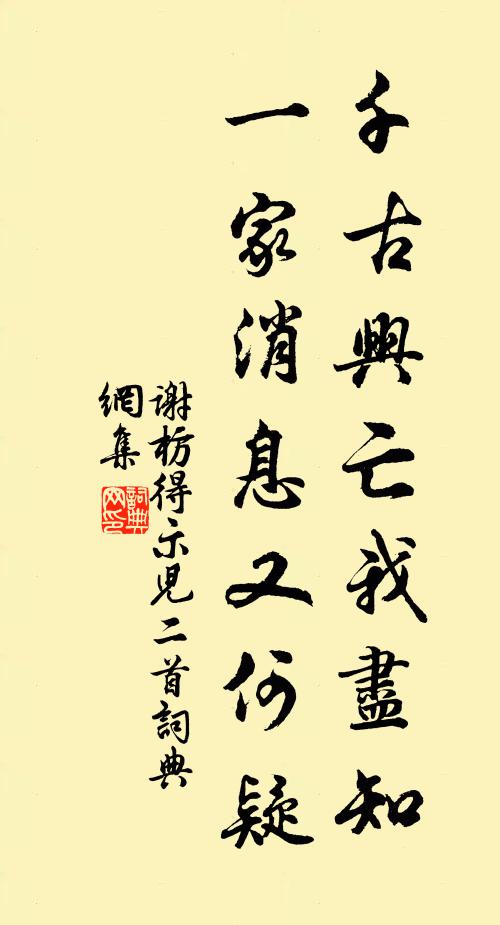 千古興亡我盡知
一家消息又何疑
謝枋得示兒二首詞典
網集
詞典
网印